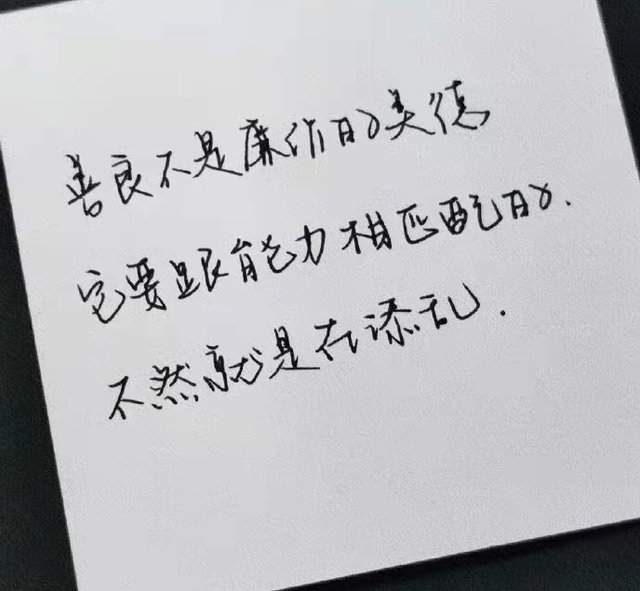 善良不是廉价的美德
它要跟能力相匹配的.
不然就是在添乱.